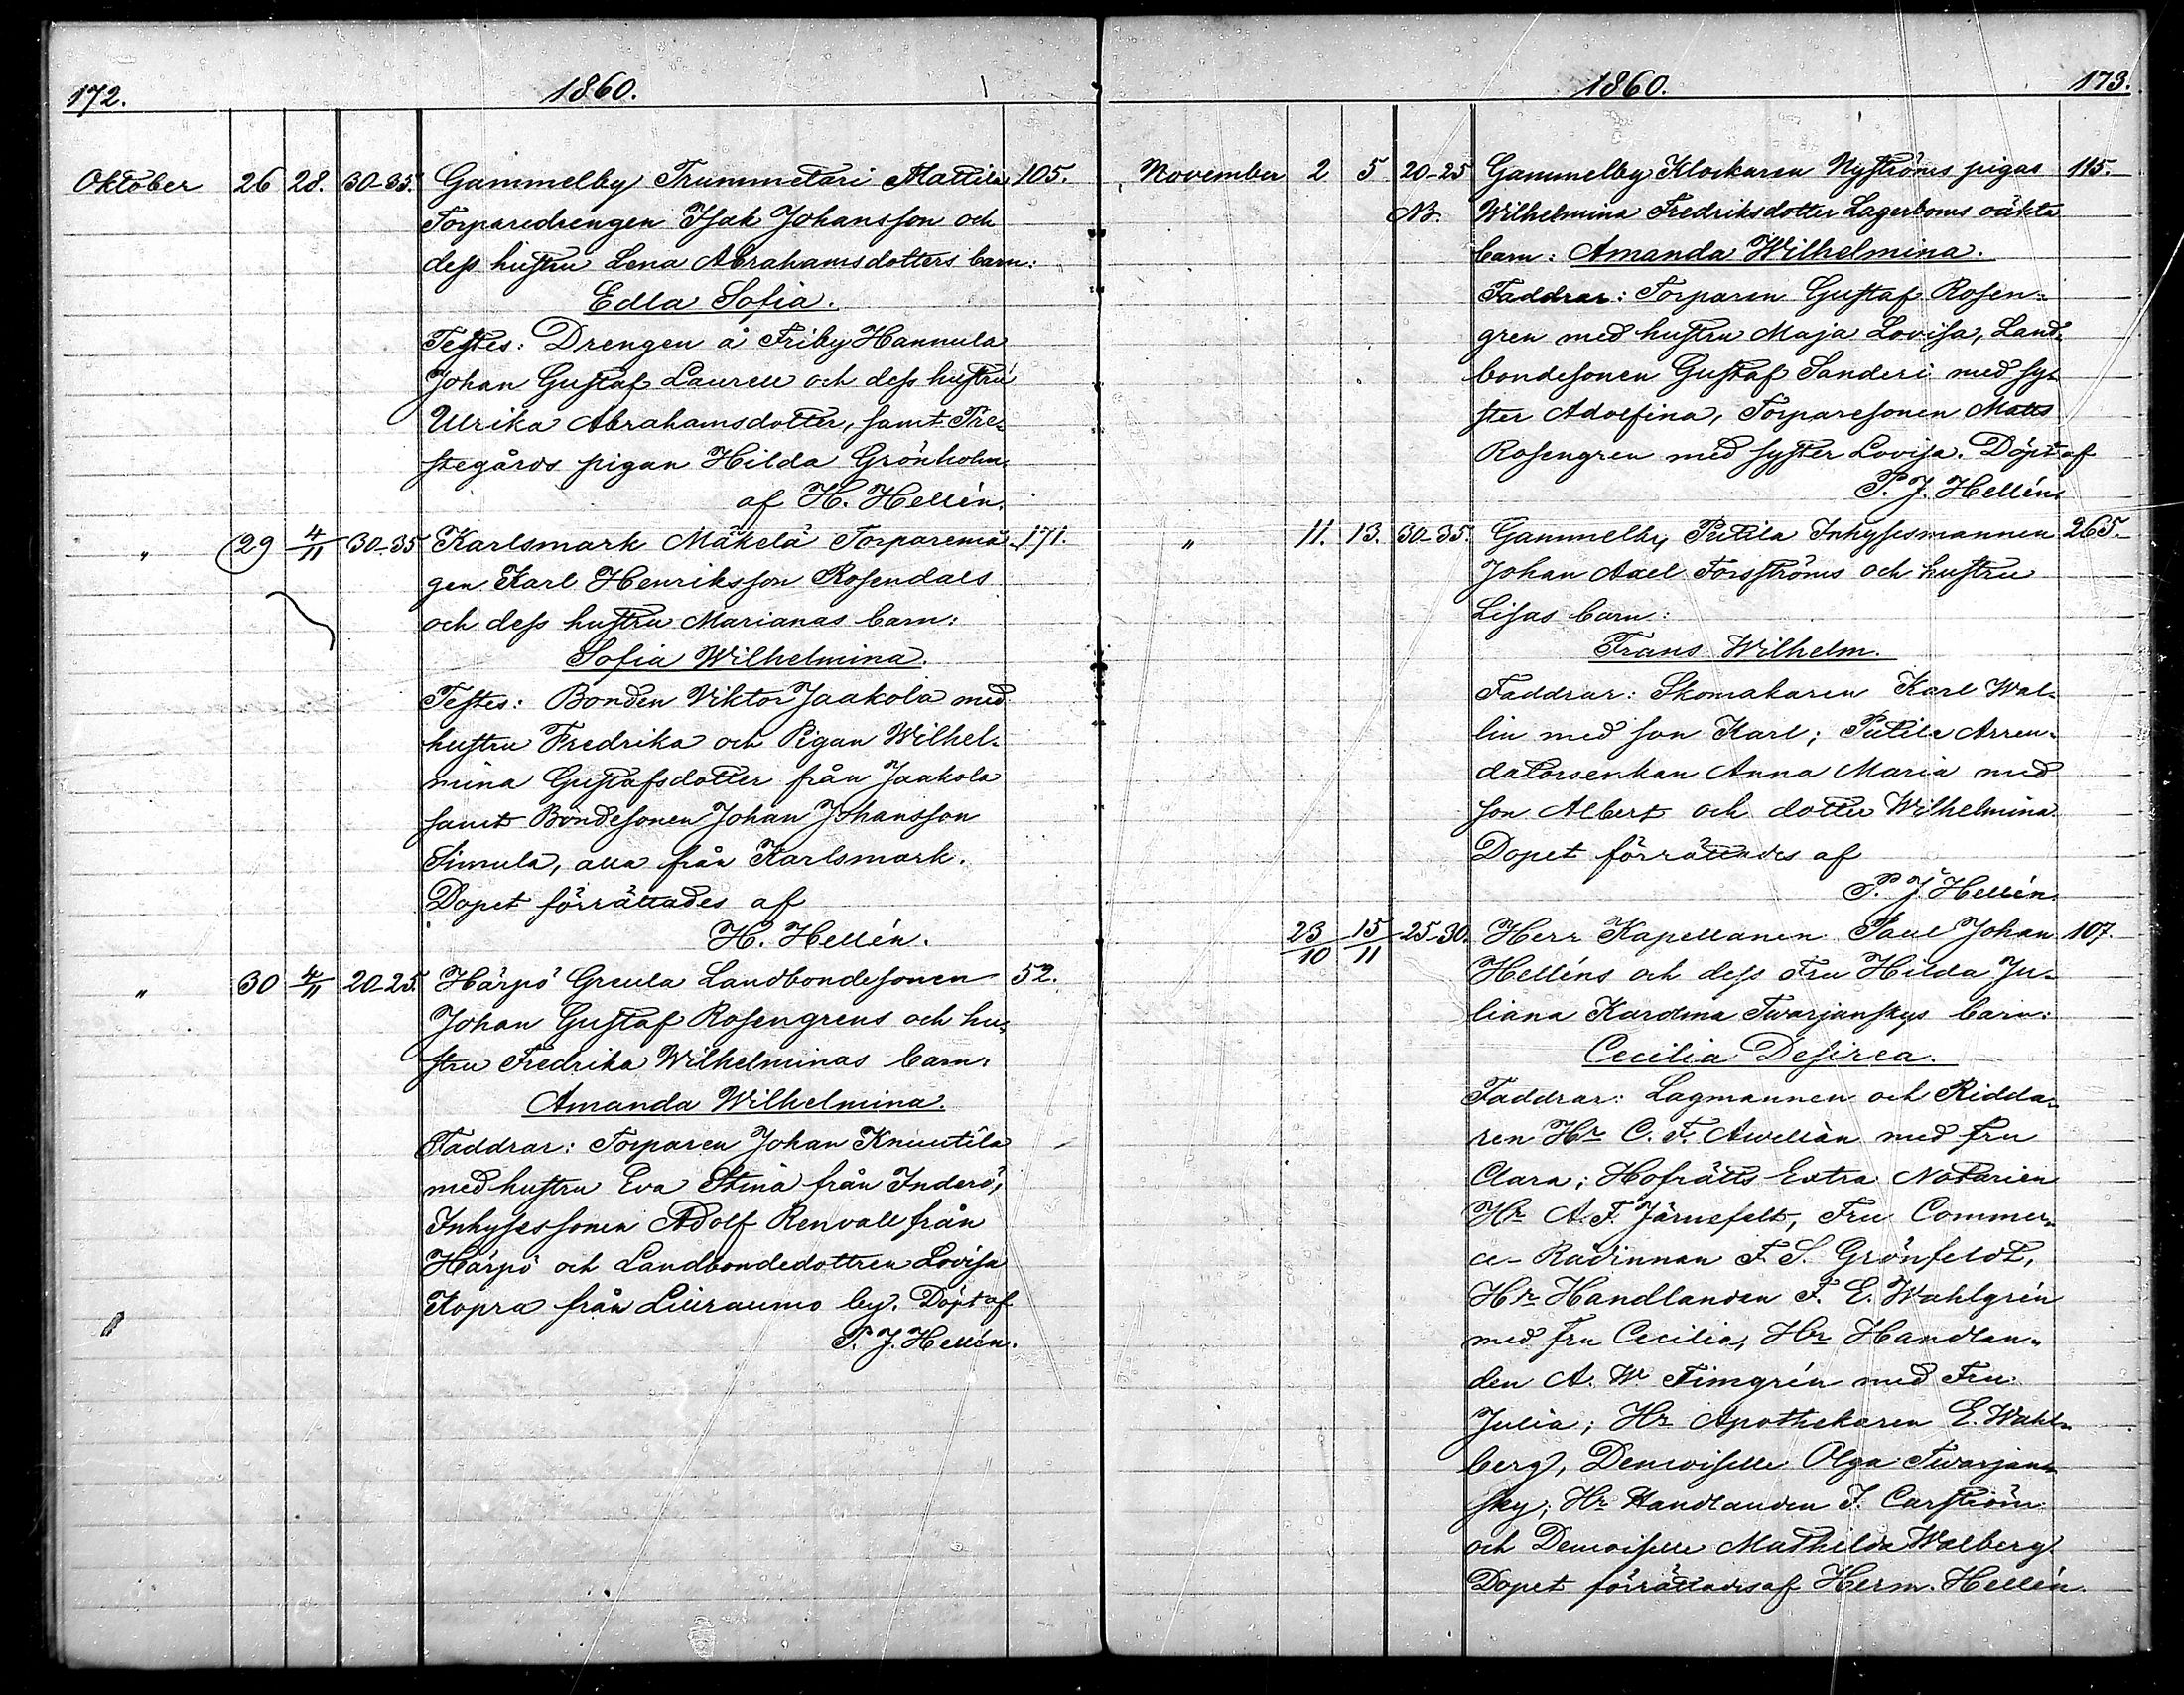 172. 1860.
Oktober 26 28. 30-35. Gammelby Trummetari Mattila 105.
Torparedrengen Isak Johansson och
dess hustru Lena Abrahamsdotters barn:
Edla Sofia.
Testes: Drengen å Friby Hannula
Johan Gustaf Laurell och dess hustru
Ulrika Abrahamsdotter, samt Pre-
stegårds pigan Hilda Grönholm.
af H. Hellén.
" 29 4/11 30-35 Karlsmark Mäkelä Torparemå- 171.
gen Karl Henriksson Rosendals
och dess hustru Marianas barn:
Sofia Wilhelmina.
Testes: Bonden Viktor Jaakola med
hustru Fredrika och Pigan Wilhel-
mina Gustafsdotter från Jaakola
samt Bondesonen Johan Johansson
Simula, alla från Karlsmark.
Dopet förrättades af
H. Hellén.
" 30 4/11 20-25. Härpö Greula Landbondesonen 52.
Johan Gustaf Rosengrens och hu-
stru Fredrika Wilhelminas barn:
Amanda Wilhelmina.
Faddrar: Torparen Johan Knuutila
med hustru Eva Stina från Inderö,
Inhysessonen Adolf Renvall från
Härpö och Landbondedottren Lovisa
Kopra från Lüraumo by. Döpt af
P. J. Hellén.
1860. 173.
November 2 5 20-25 Gammelby Klockaren Nyströms pigas 115.
NB. Wilhelmina Fredriksdotter Lagerboms oäkta
barn: Amanda Wilhelmina.
Faddrar: Torparen Gustaf Rosen-
gren med hustru Maja Lovisa, Land-
bondesonen Gustaf Sanderi med sy-
ster Adolfina, Torparesonen Matts
Rosengren med syster Lovisa. Döpt af
P. J. Hellén.
" 11. 13. 30-35. Gammelby Putila Inhysesmannen 265.
Johan Axel Forsströms och hustru
Lisas barn:
Frans Wilhelm.
Faddrar: Skomakaren Karl Wal-
lin med son Karl; Putila Arren-
datorsenkan Anna Maria med
son Albert och dotter Wilhelmina.
Dopet förrättades af
P. J. Hellén.
23/10 15/11 25-30. Herr Kapellanen Paul Johan 107.
Helléns och dess Fru Hilda Ju-
liana Karolina Twarjanskys barn:
Cecilia Desirea.
Faddrar: Lagmannen och Ridda-
ren Hr C. F. Awellàn med fru
Clara; Hofrätts Extra Notarien
Hr A. F. Järnefelt, Fru Commer-
ce-Rådinnan F. S. Grönfeldt,
Hr Handlanden F. E. Wahlgrén
med fru Cecilia, Hr Handlan-
den A. W. Timgrén med Fru
Julia; Hr Apothekaren E. Wahl-
berg, Demoiselle Olga Twarjan-
sky; Hr Handlanden J. Carström
och Demoiselle Mathilda Walberg.
Dopet förrättades af Herm. Hellén.